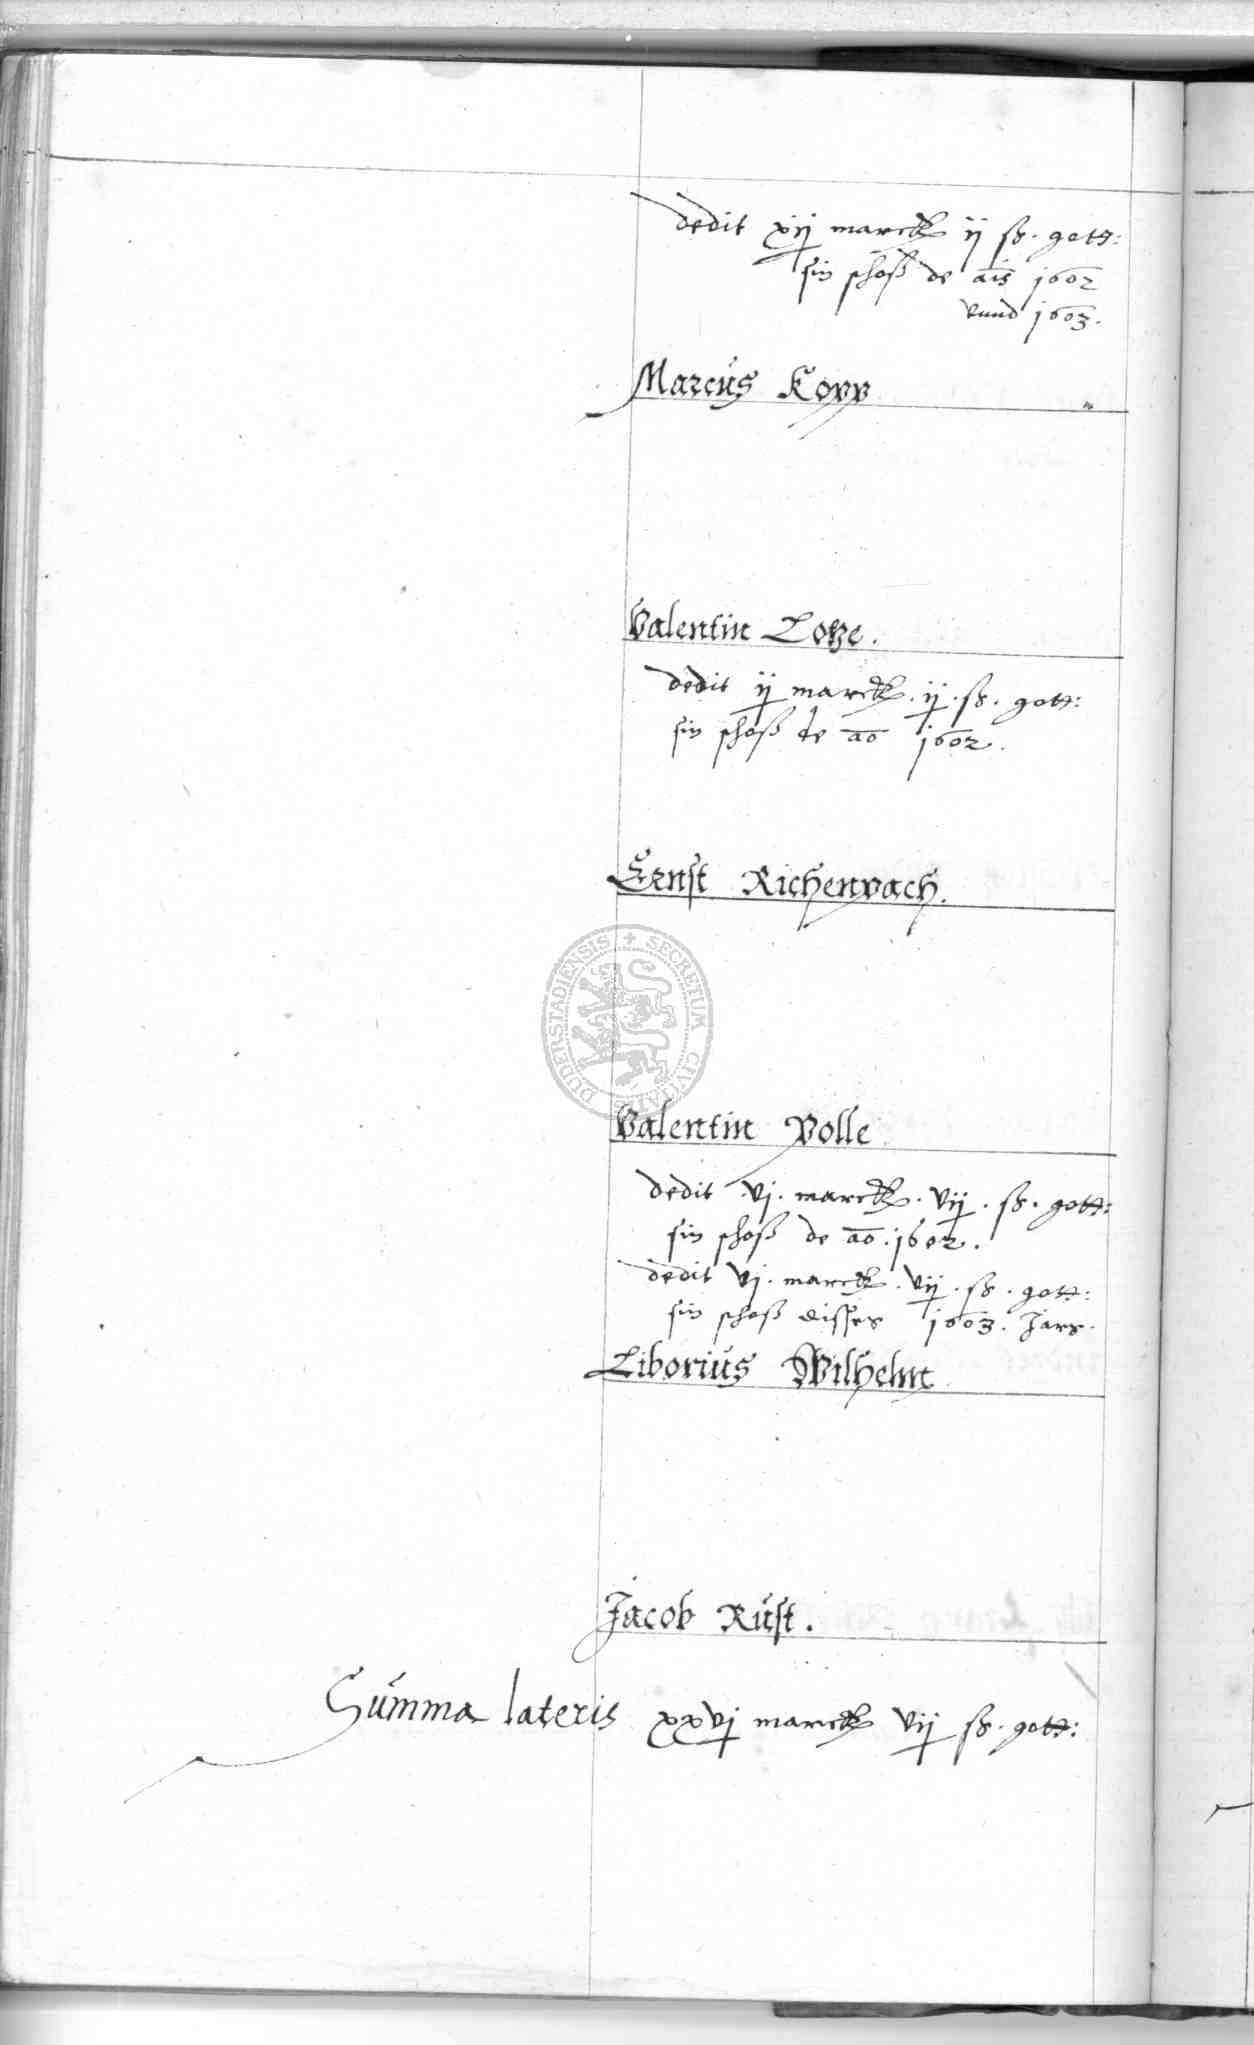 dedit xij marck ij ß. gott:
sin schoß de ais 1602
vnnd 1603.
Marcus Kopp
Valentin Lotze.
dedit ij marck. ij. ß. gott:
sin schoß de ao 1602.
Ernst Richenbach.
DUDERSTADIENSIS + SECRETUM CIVITATIS
Valentin Polle
dedit vj. marck. vij. ß. gott:
sin schoß de ao. 1602.
dedit vj. marck. vij. ß. gott:
sin schoß disses 1603. Jars.
Liborius Wilhelm
Jacob Rust.
Summa lateris xxvj marck vij ß. gott: